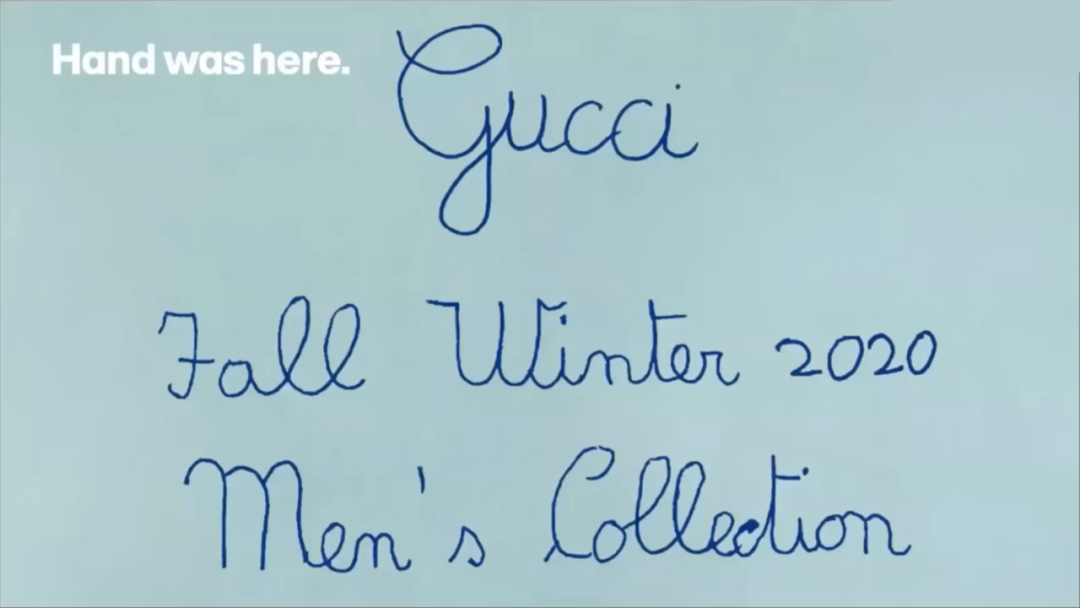 Hand was here.
Gucci
Fall Winter 2020
Men's Collection